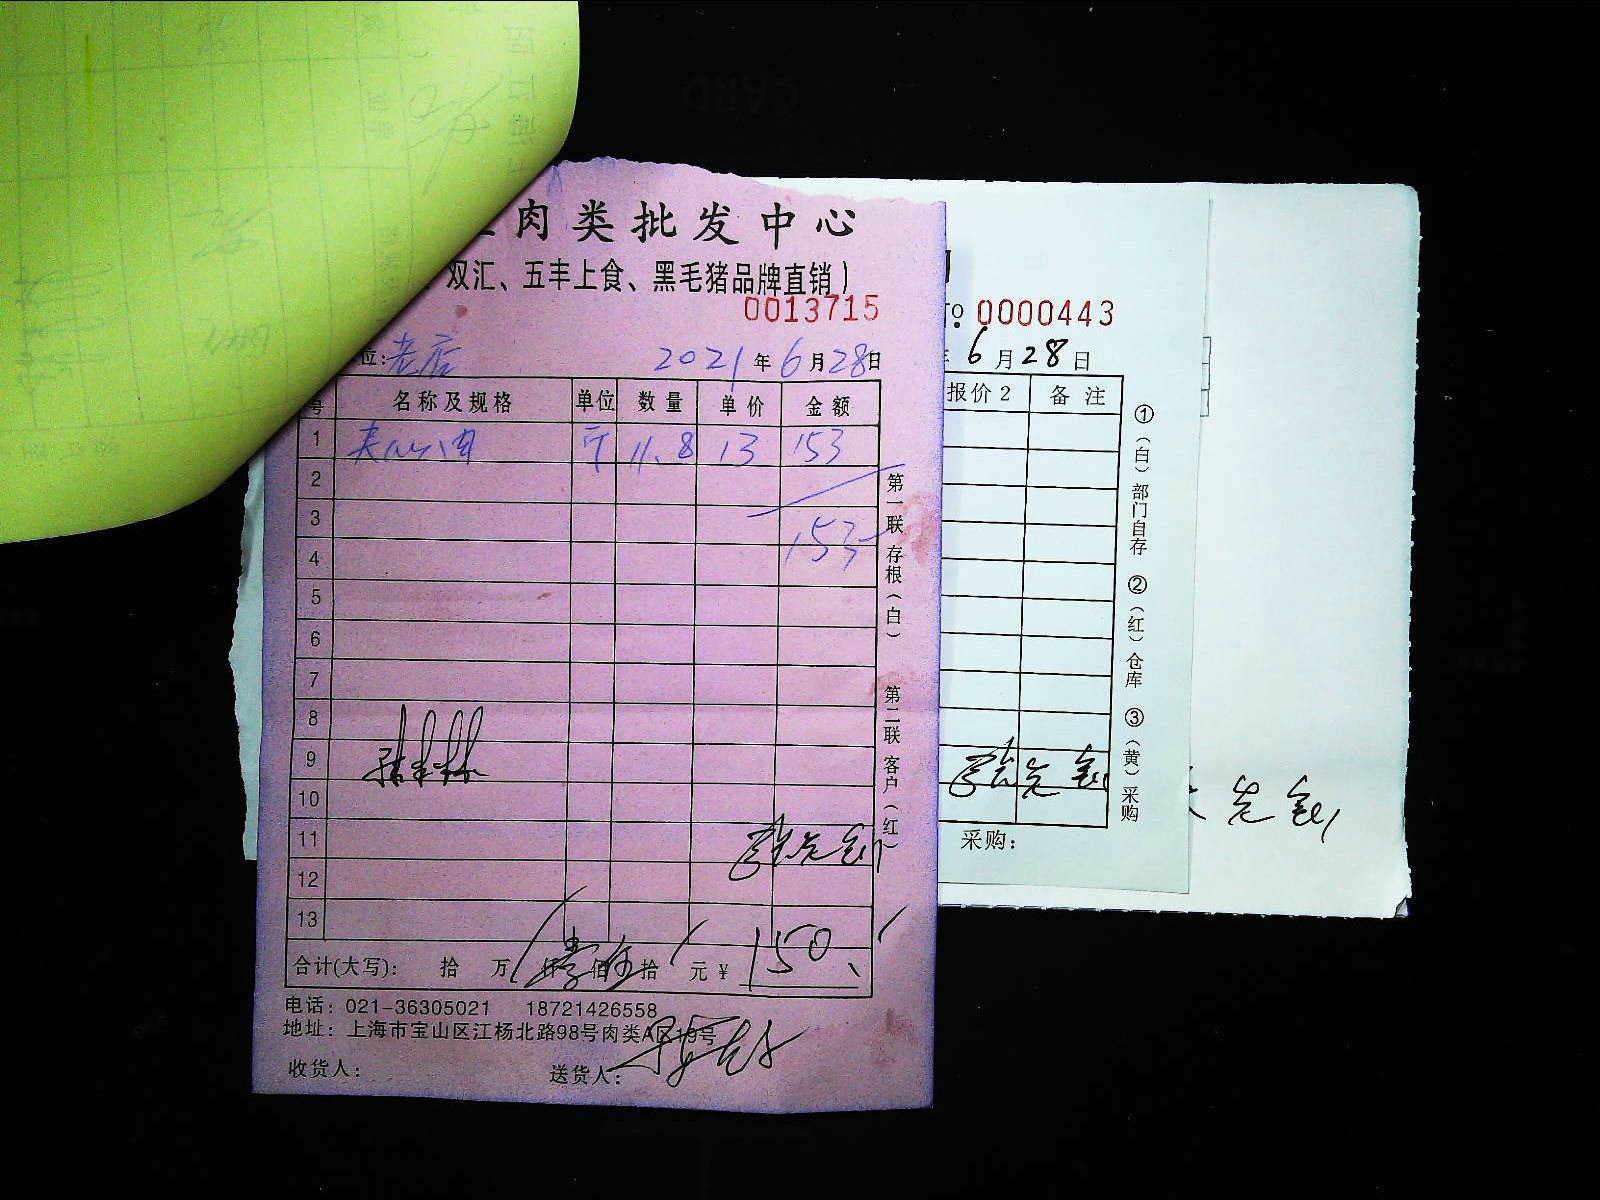 肉类批发中心
双汇、五丰上食、黑毛猪品牌直销）
0013715
位：老店 2021年6月28日
号 名称及规格 单位 数量 单价 金额
1 夹心肉 斤 11.8 13 153
2
3 153
4
5
6
7
8
9
10
11
12
13
合计(大写)： 拾 万 仟 佰 拾 元 ¥ 150
电话：021-36305021 18721426558
地址：上海市宝山区江杨北路98号肉类A区19号
收货人： 送货人：
第一联 存根（白） 第二联 客户（红）
0000443
6月28日
报价2 备注
采购：
①（白）部门自存 ②（红）仓库 ③（黄）采购
CARD